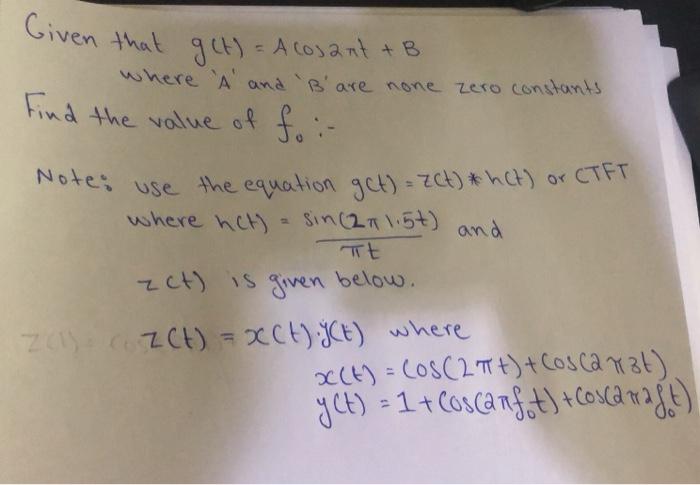 Given that g(t) = A cos 2πt + B
where 'A' and 'B' are none zero constants
Find the value of f₀ :-
Note: use the equation g(t) = z(t) * h(t) or CTFT
where h(t) = sin(2π 1.5t) / πt and
z(t) is given below.
z(t) = x(t).y(t) where
x(t) = cos(2πt) + cos(2π3t)
y(t) = 1 + cos(2πf₀t) + cos(2π2f₀t)